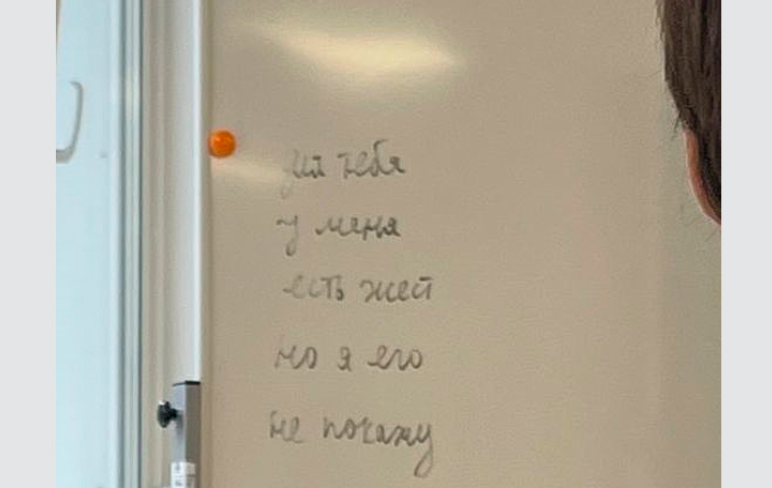 для тебя
у меня
есть жест
но я его
не покажу